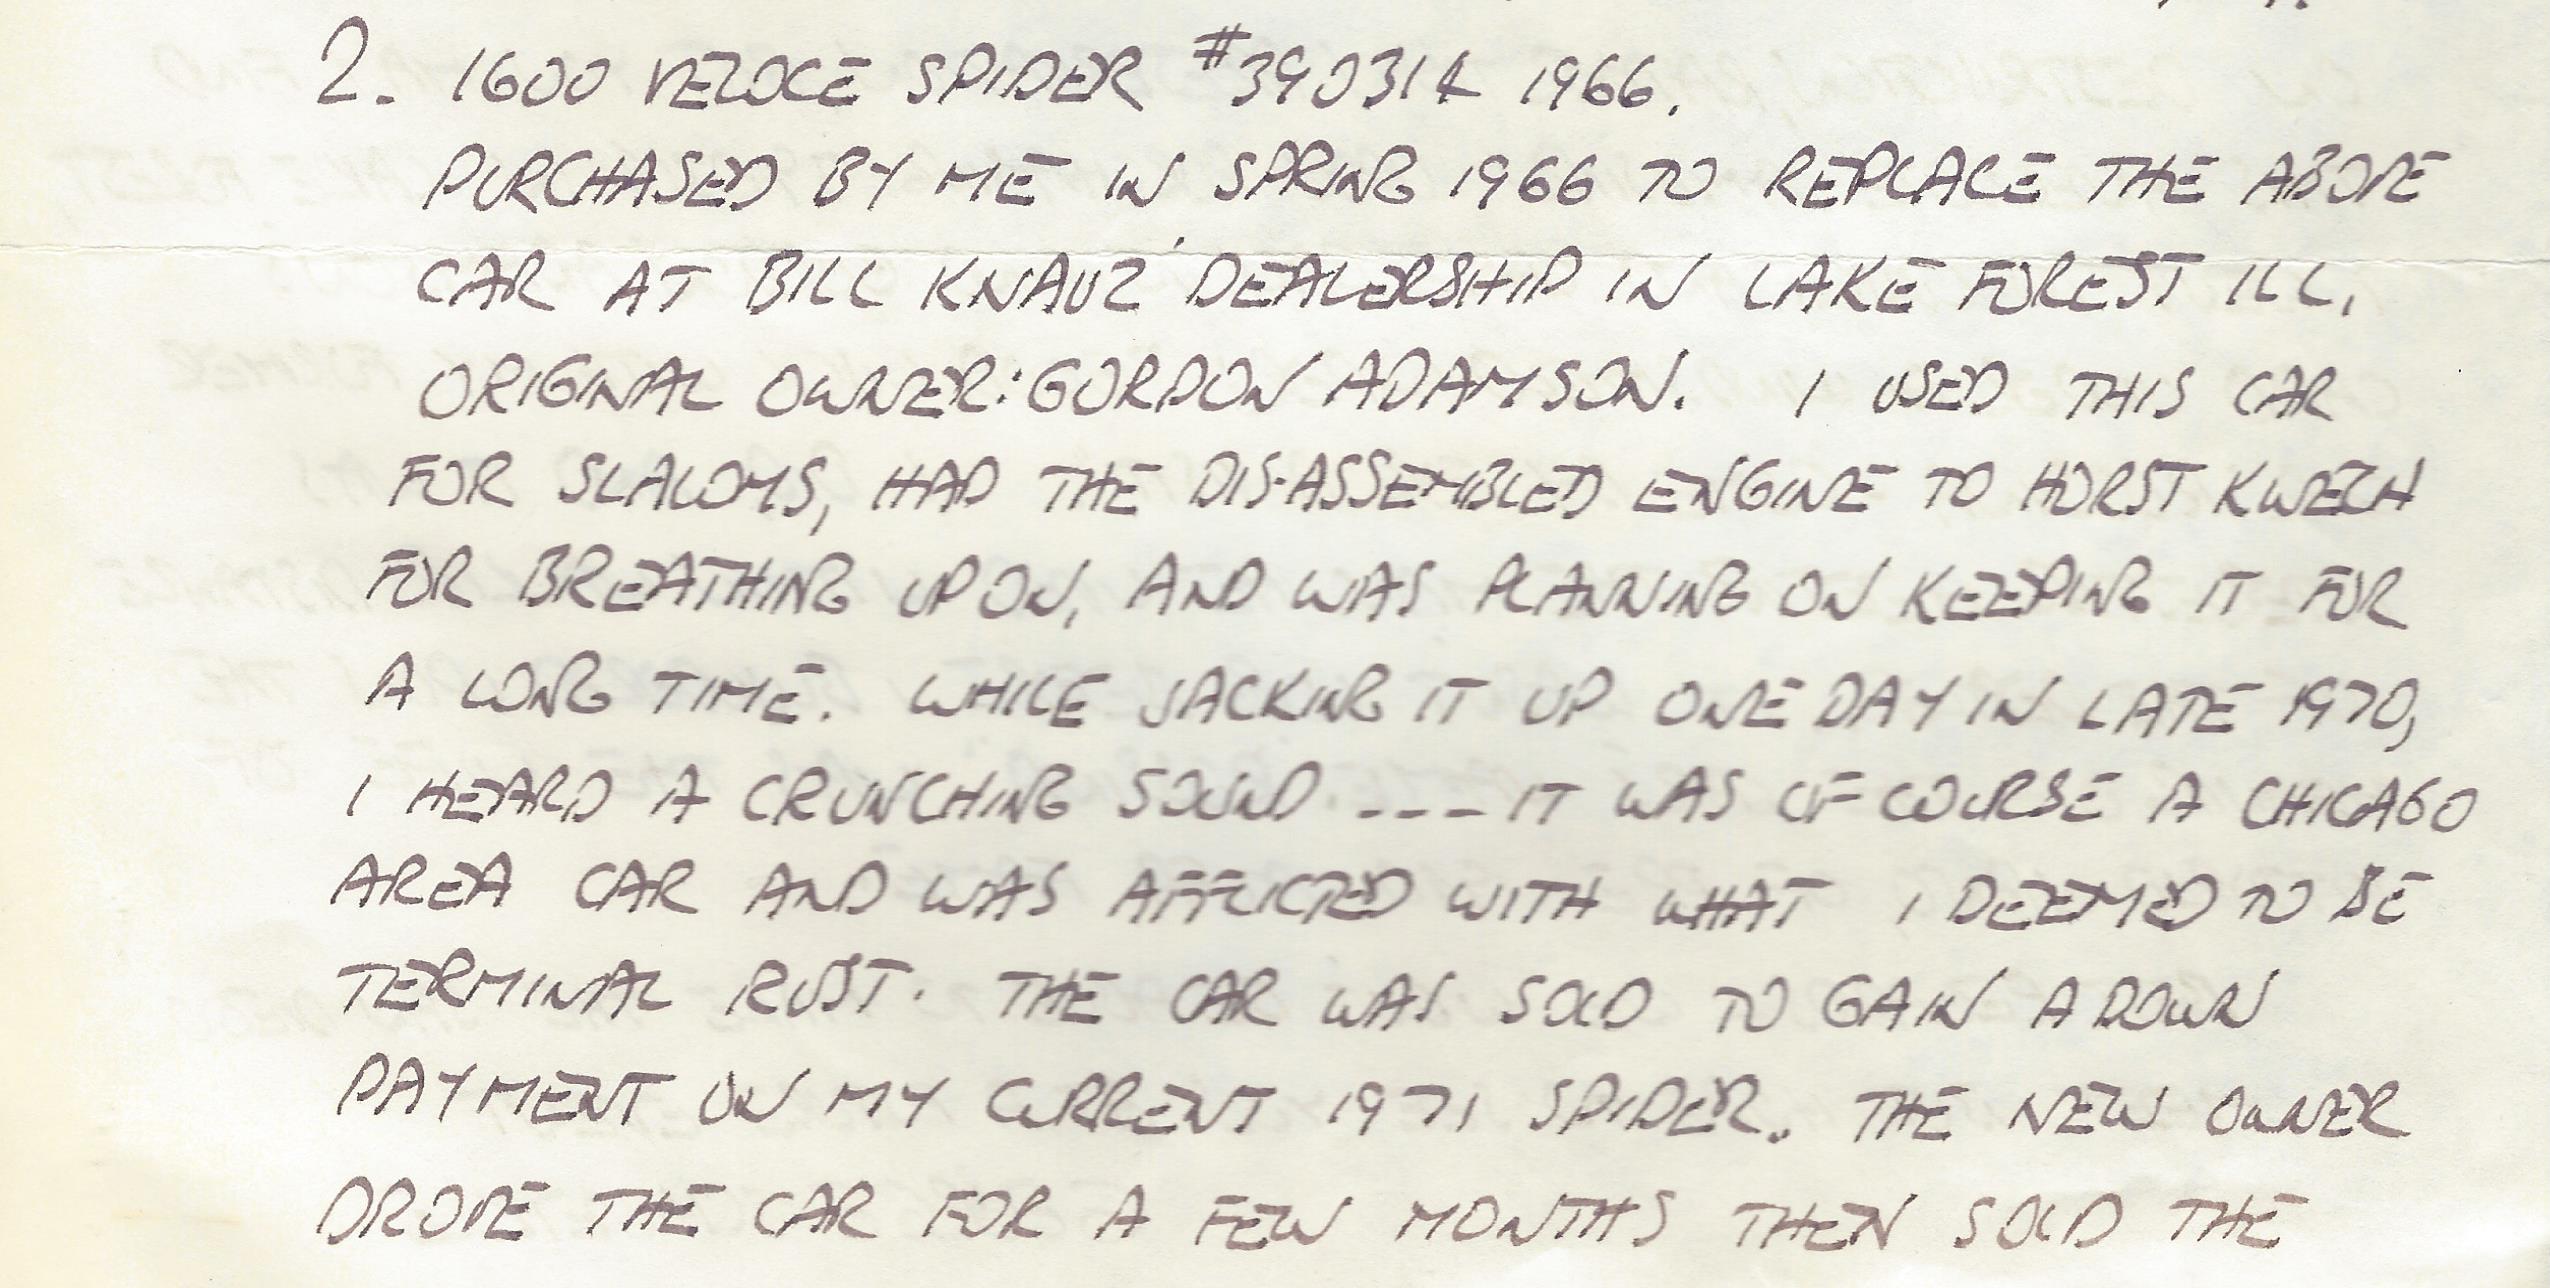 2. 1600 VELOCE SPIDER #390314 1966.
PURCHASED BY ME IN SPRING 1966 TO REPLACE THE ABOVE
CAR AT BILL KNAUZ DEALERSHIP IN LAKE FOREST ILL,
ORIGINAL OWNER: GORDON ADAMSON. I USED THIS CAR
FOR SLALOMS, HAD THE DIS-ASSEMBLED ENGINE TO HORST KWECH
FOR BREATHING UPON, AND WAS PLANNING ON KEEPING IT FOR
A LONG TIME. WHILE JACKING IT UP ONE DAY IN LATE 1970,
I HEARD A CRUNCHING SOUND ---- IT WAS OF COURSE A CHICAGO
AREA CAR AND WAS AFFLICTED WITH WHAT I DEEMED TO BE
TERMINAL RUST. THE CAR WAS SOLD TO GAIN A DOWN
PAYMENT ON MY CURRENT 1971 SPIDER. THE NEW OWNER
DROVE THE CAR FOR A FEW MONTHS THEN SOLD THE